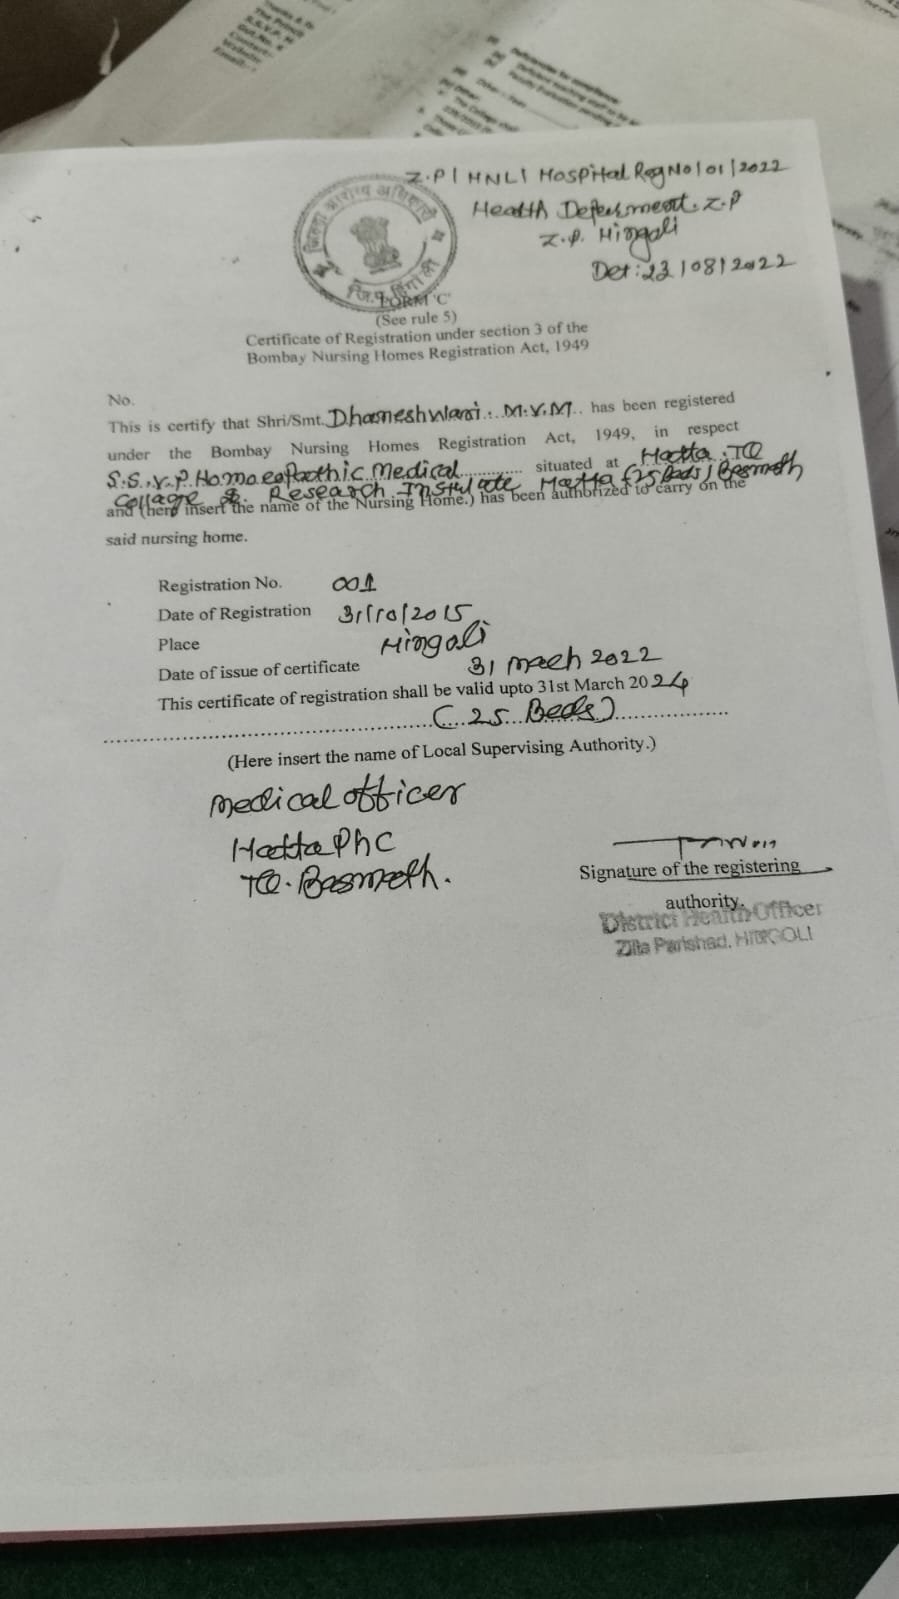 Z.P| HNLI Hospital Reg No|01|2022
Health Z.P
Z.P. Hingoli
Det: 23|08|2022
जिल्हा आरोग्य अधिकारी
जि.प. हिंगोली
FORM 'C'
(See rule 5)
Certificate of Registration under section 3 of the
Bombay Nursing Homes Registration Act, 1949
No.
This is certify that Shri/Smt. Dhaneshwari M.V.M. has been registered
under the Bombay Nursing Homes Registration Act, 1949, in respect
S.S.V.P. Homoeopathic Medical situated at Hatta TQ
Collage & Research Institute Hatta (25 Beds) Basmath
and (here insert the name of the Nursing Home.) has been authorized to carry on the
said nursing home.
Registration No. 001
Date of Registration 31/10/2015
Place Hingoli
Date of issue of certificate 31 March 2022
This certificate of registration shall be valid upto 31st March 2024
(...25...Beds)
(Here insert the name of Local Supervising Authority.)
medical officer
Hatta PHC
TQ. Basmath.
Signature of the registering
authority.
District Health Officer
Zilla Parishad, HINGOLI